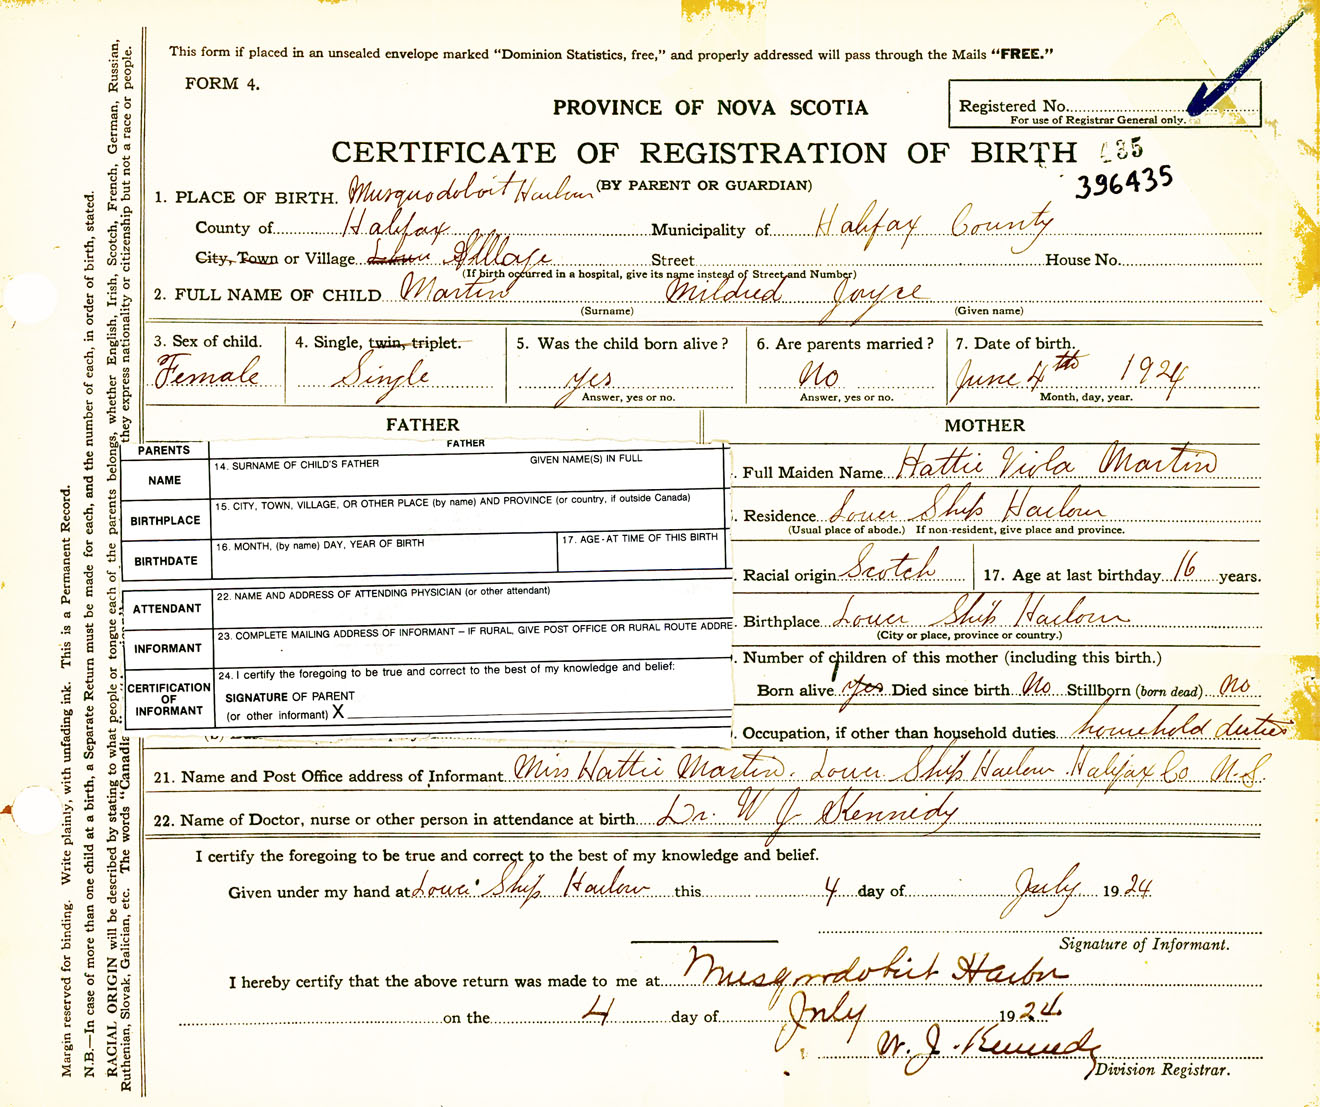 This form if placed in an unsealed envelope marked "Dominion Statistics, free," and properly addressed will pass through the Mails "FREE."
FORM 4.
PROVINCE OF NOVA SCOTIA
Registered No.
For use of Registrar General only.
CERTIFICATE OF REGISTRATION OF BIRTH
396435
(BY PARENT OR GUARDIAN)
1. PLACE OF BIRTH. Musquodoboit Harbour
County of Halifax Municipality of Halifax County
City, Town or Village Village Street House No.
(If birth occurred in a hospital, give its name instead of Street and Number)
2. FULL NAME OF CHILD Martin Mildred Joyce
(Surname) (Given name)
3. Sex of child. 4. Single, twin, triplet. 5. Was the child born alive? 6. Are parents married? 7. Date of birth.
Female Single yes No June 4th 1924
Answer, yes or no. Answer, yes or no. Month, day, year.
FATHER MOTHER
PARENTS FATHER
NAME 14. SURNAME OF CHILD'S FATHER GIVEN NAME(S) IN FULL
Full Maiden Name Hattie Viola Martin
BIRTHPLACE 15. CITY, TOWN, VILLAGE, OR OTHER PLACE (by name) AND PROVINCE (or country, if outside Canada)
Residence Lower Ship Harbour
(Usual place of abode.) If non-resident, give place and province.
BIRTHDATE 16. MONTH, (by name) DAY, YEAR OF BIRTH 17. AGE - AT TIME OF THIS BIRTH
Racial origin Scotch 17. Age at last birthday 16 years.
ATTENDANT 22. NAME AND ADDRESS OF ATTENDING PHYSICIAN (or other attendant)
Birthplace Lower Ship Harbour
(City or place, province or country.)
INFORMANT 23. COMPLETE MAILING ADDRESS OF INFORMANT – IF RURAL, GIVE POST OFFICE OR RURAL ROUTE ADDRE
Number of children of this mother (including this birth.)
CERTIFICATION OF INFORMANT 24. I certify the foregoing to be true and correct to the best of my knowledge and belief:
SIGNATURE OF PARENT
(or other informant) X
Born alive 1 yes Died since birth No Stillborn (born dead) no
Occupation, if other than household duties household duties
21. Name and Post Office address of Informant Miss Hattie Martin. Lower Ship Harbour Halifax Co N.S.
22. Name of Doctor, nurse or other person in attendance at birth Dr. W J Kennedy
I certify the foregoing to be true and correct to the best of my knowledge and belief.
Given under my hand at Lower Ship Harbour this 4 day of July 1924
Signature of Informant.
I hereby certify that the above return was made to me at Musquodoboit Harbor
on the 4 day of July 1924.
W. J. Kennedy
Division Registrar.
Margin reserved for binding. Write plainly, with unfading ink. This is a Permanent Record.
N.B.—In case of more than one child at a birth, a Separate Return must be made for each, and the number of each, in order of birth, stated.
RACIAL ORIGIN will be described by stating to what people or tongue each of the parents belongs, whether English, Irish, Scotch, French, German, Russian,
Ruthenian, Slovak, Galician, etc. The words "Canadia they express nationality or citizenship but not a race or people.